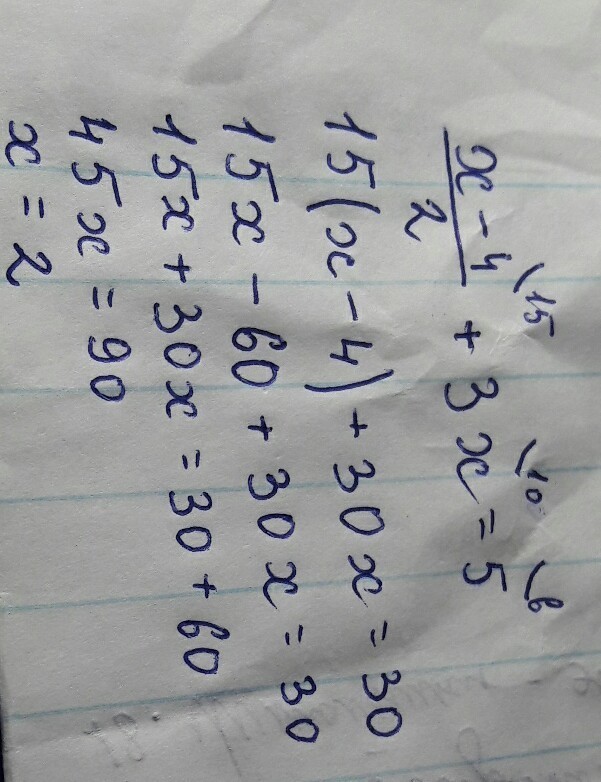 x - 4 \15
/ 2 + 3x \10 = 5 \6
15(x - 4) + 30x = 30
15x - 60 + 30x = 30
15x + 30x = 30 + 60
45x = 90
x = 2